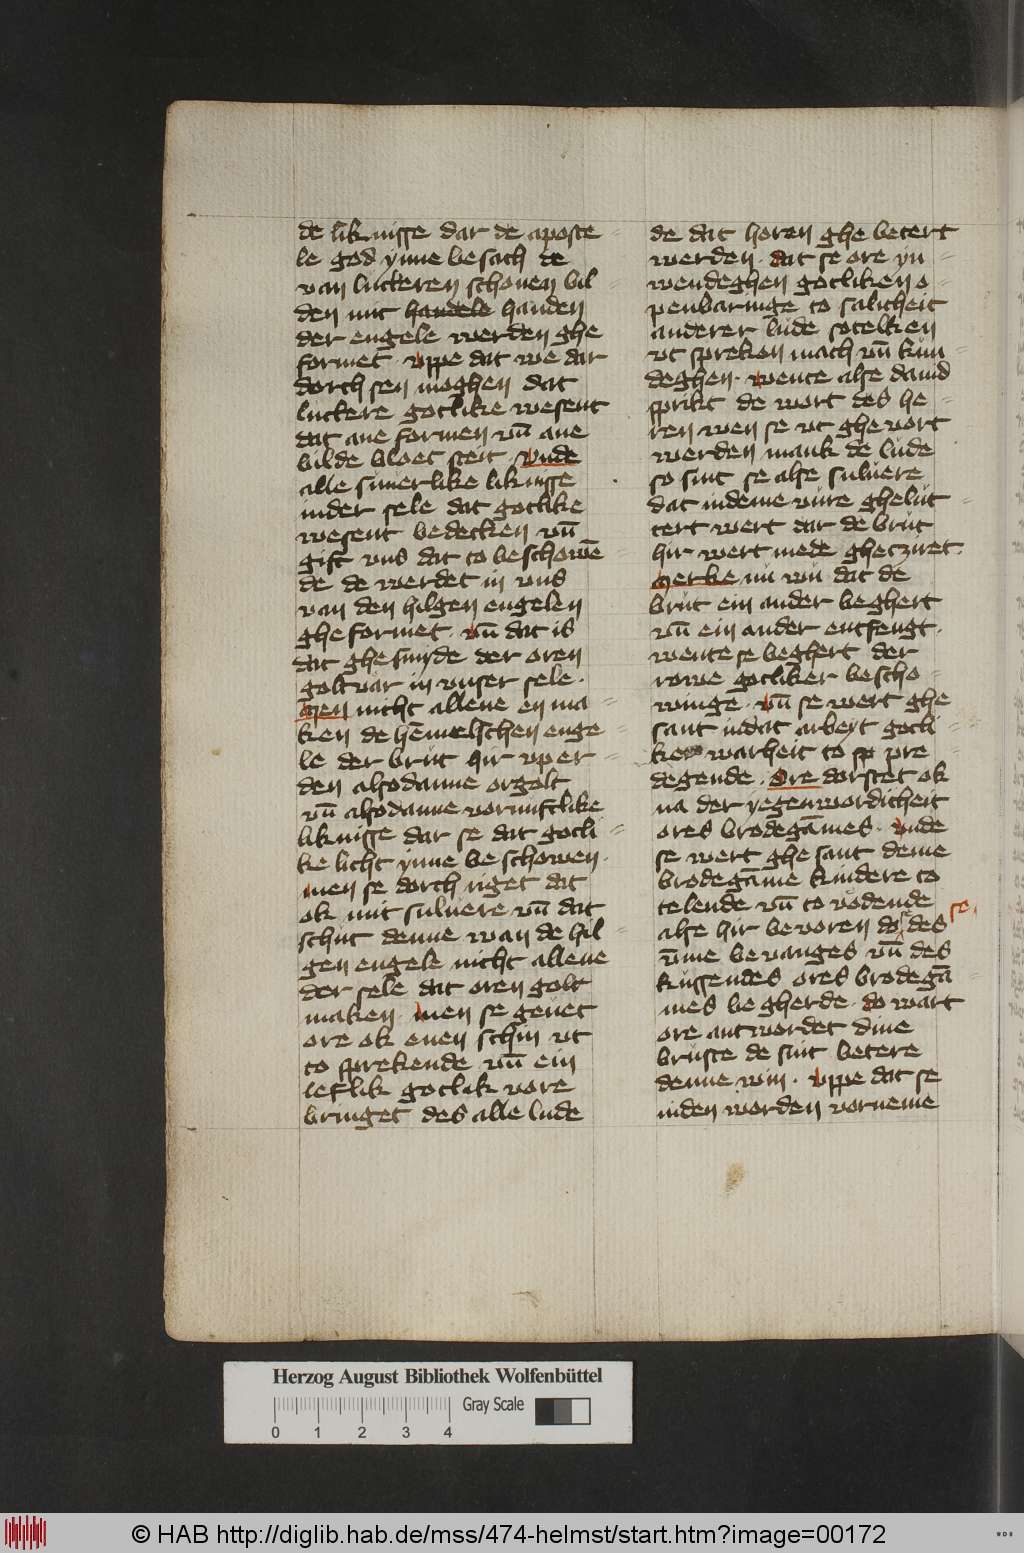 de liknisse dar de aposte
le god ynne besach de
van lutteren schonen bil
den mit handele handen
der engele werden ghe
formet. uppe dat we dar
dorch sen moghen dat
luttere gotlike wesent
dat ane formen vn̄ ane
bilde bloet steit. Vnde
alle sunerlike liknisse
inder sele dat gotlike
wesent bedecken vn̄
gift vns dat to beschowē
de de werdet in vns
van den hilgen engelen
ghe formet. vn̄ dat is
dat ghesmyde der oren
goltvar in vnser sele.
Men nicht allene en ma
ken de hēmelschen enge
le der brut hir vp er
den alsodanne orgolt
vn̄ alsodanne vornuftlike
liknisse dar se dat gotli
ke licht ynne beschowen.
men se dorch riget dat
ok mit suluere vn̄ dat
schut denne wan de hil
gen engele nicht allene
der sele dat oren golt
maken. Men se geuet
ore ok enen schin vt
to sprekende vn̄ ein
leflik gotlik vore
bringet des alle lude
de dat horen ghe betert
werden. dat se ore yn
wendeghen gotliken o
penbaringe to salicheit
anderer lude sotelken
vt spreken mach vn̄ kun
deghen. wente alse dauid
sprikt de wort des he
ren wen se vt ghe vort
werden mank de lude
so sint se alse suluere
dat indeme vure ghelut
tert wert dar de brut
hir wert mede gheczuret.
Merke nu wu dat de
brut ein ander beghert
vn̄ ein ander entfengt.
wente se beghert der
rowe gotliker bescho
winge. vn̄ se wert ghe
sant indat arbeyt gotli
ker warheit to sp pre
degende. Ore dorstet ok
na der yegenwordicheit
ores brodegāmes. vnde
se wert ghe sant deme
brodegāme kindere to
telende vn̄ to vodende
alse hir bevoren do se des se
vmme bevanges vn̄ des
kussendes ores brodegā
mes begherde. do wart
ore antwordet dine
bruste de sint betere
denne win. uppe dat se
inden worden vorneme
Herzog August Bibliothek Wolfenbüttel
Gray Scale
0 1 2 3 4
© HAB http://diglib.hab.de/mss/474-helmst/start.htm?image=00172